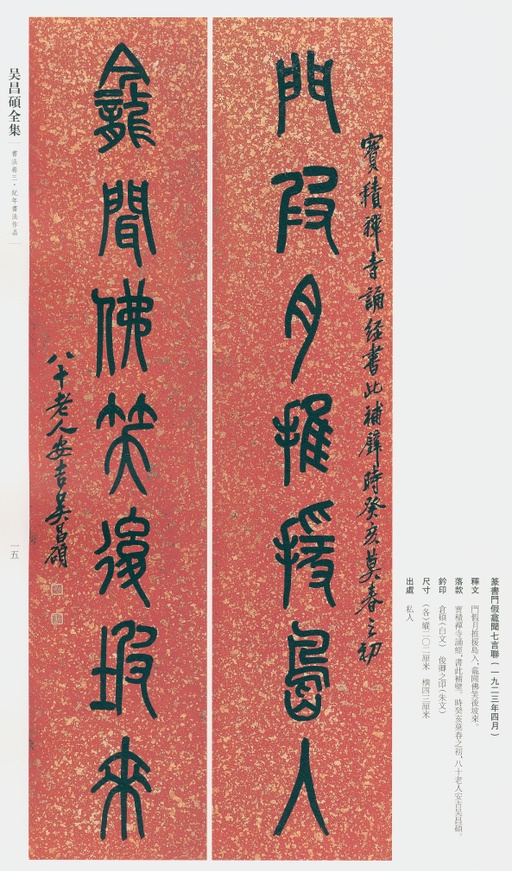 篆書門假龕聞七言聯(一九二三年四月)
釋文 門假月推援島入,龕聞佛笑後坡來。
落款 寶積禪寺誦經,書此補壁。時癸亥莫春之初,八十老人安吉吳昌碩。
鈐印 倉碩(白文) 俊卿之印(朱文)
尺寸 (各)縱二〇二厘米 橫四三厘米
出處 私人
寶積禪寺誦經書此補壁時癸亥莫春之初
門叚月推援島入
龕聞佛笑後坡來
八十老人安吉吳昌碩
吴昌碩全集
書法卷三·紀年書法作品
一五